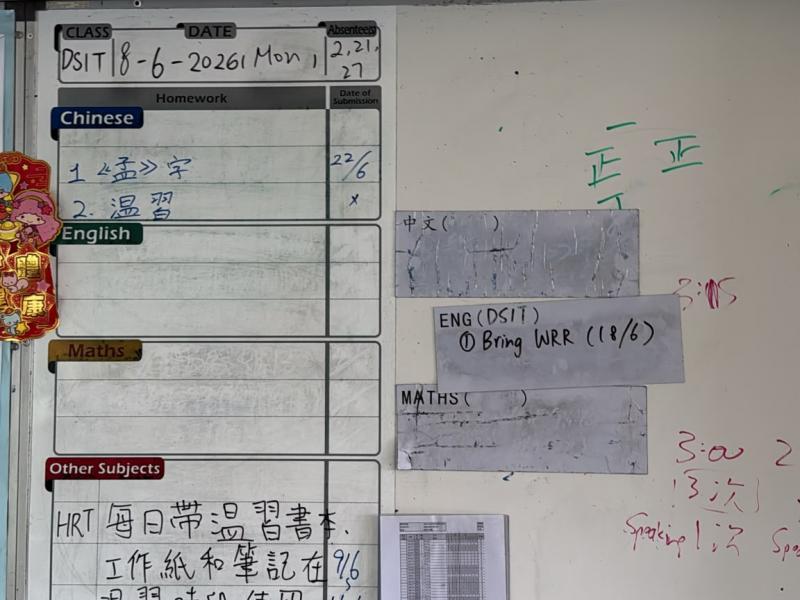 CLASS DATE Absentees
DSIT 8-6-2026, Mon, 2,21,
27
Homework Date of Submission
Chinese
1. 《孟》字 22/6
2. 温習 x
English
Maths
Other Subjects
HRT 每日帶温習書本、
工作紙和筆記在 9/6
正 正
中文( )
ENG(DSIT)
① Bring WRR (18/6)
MATHS( )
3:15
3:00 2
(3次)
Speaking 1次